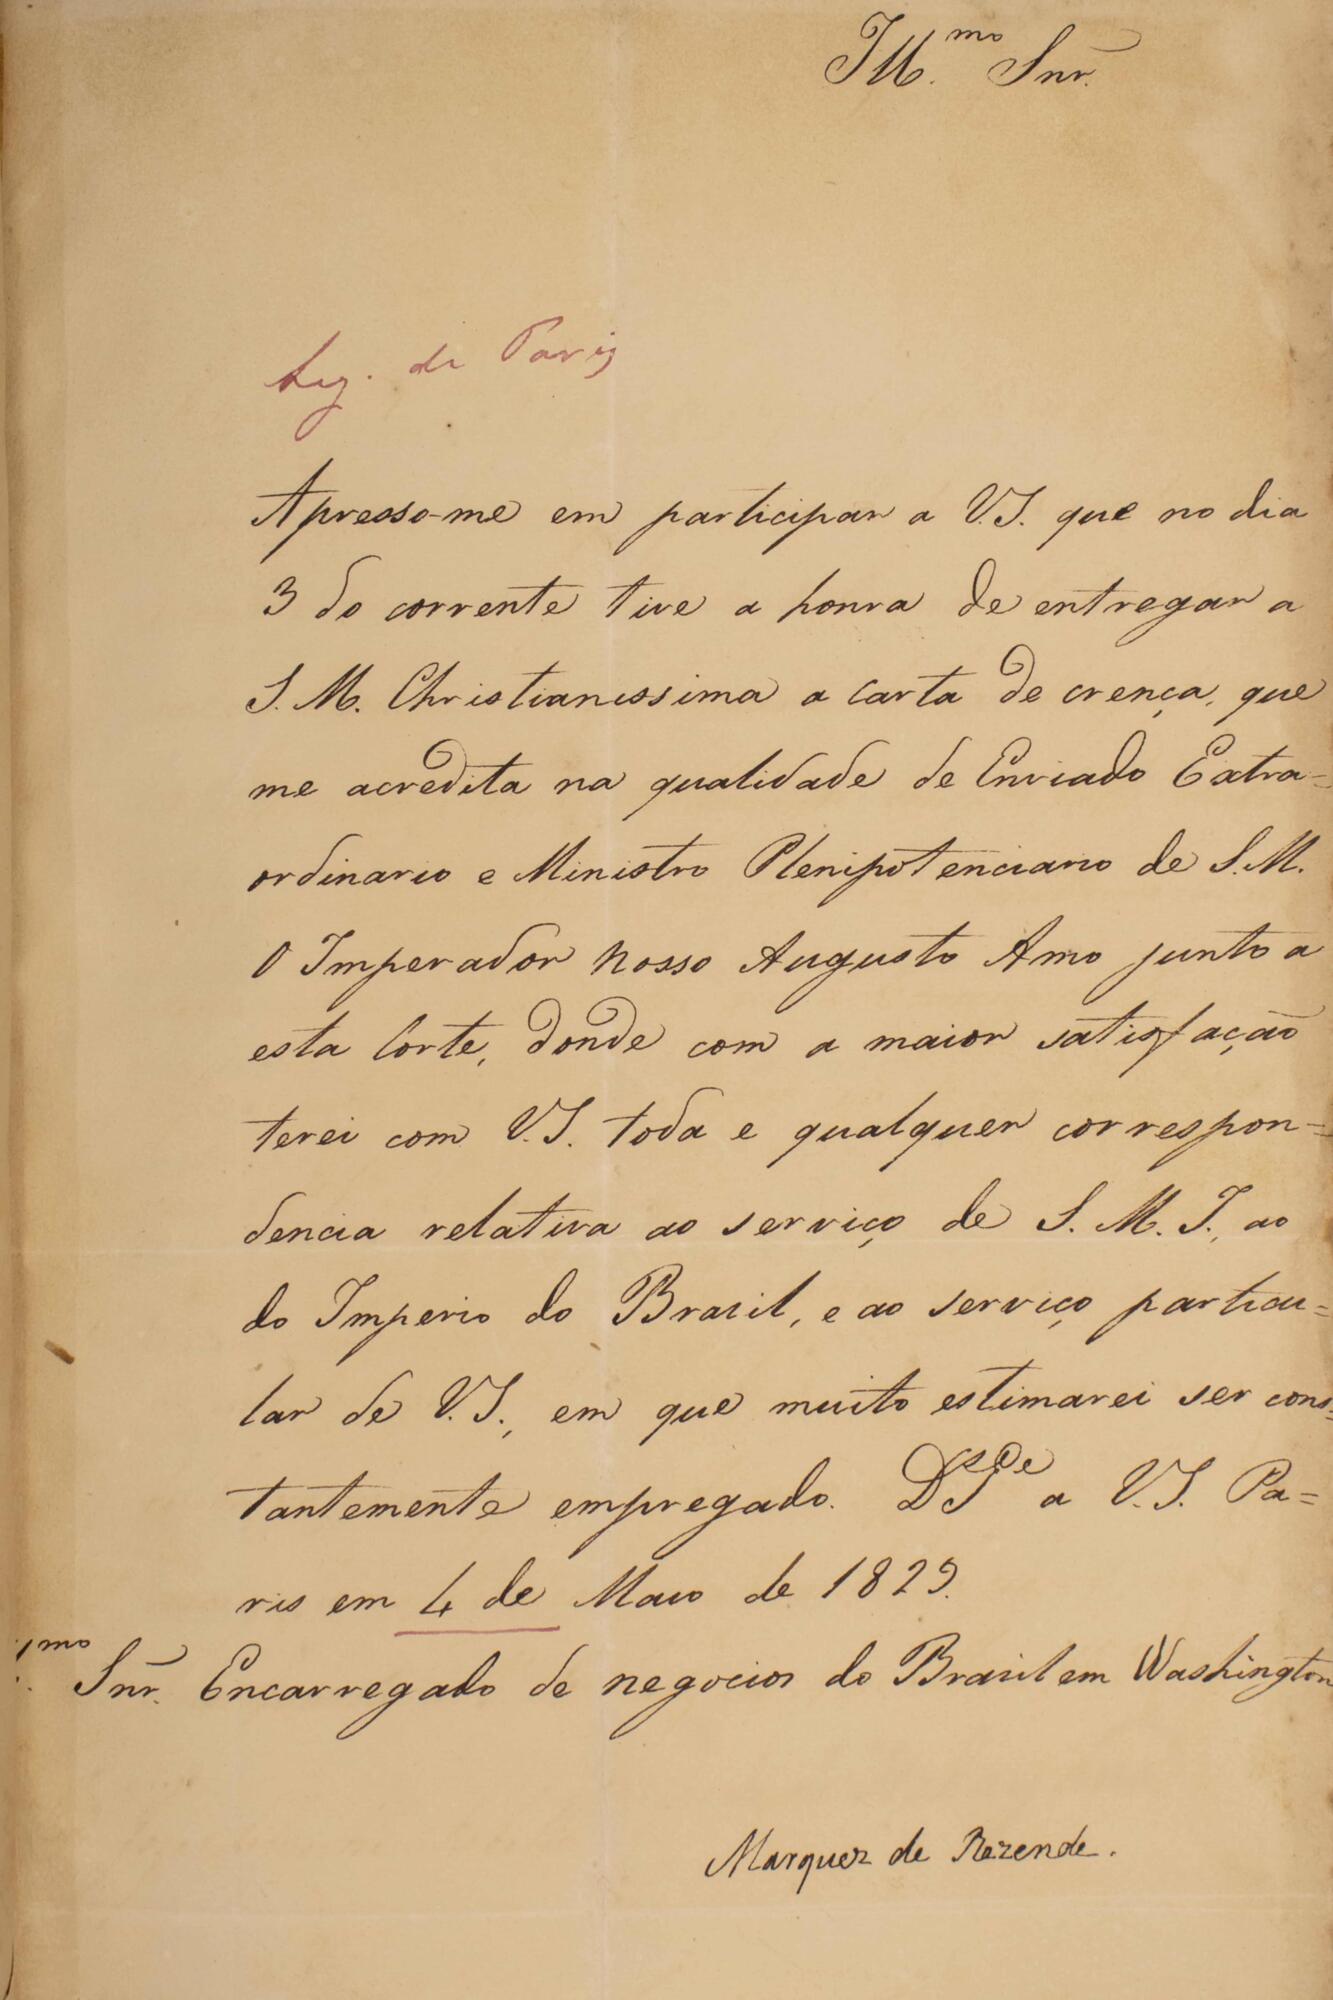 Ill.mo Snr.
Leg. de Pariz
Apresso-me em participar a V.S. que no dia
3 do corrente tive a honra de entregar a
S. M. Christianissima a carta de crença, que
me acredita na qualidade de Enviado Extra=
ordinario e Ministro Plenipotenciario de S.M.
O Imperador nosso Augusto Amo junto a
esta Corte, donde com a maior satisfação
terei com V.S. toda e qualquer correspon=
dencia relativa ao serviço de S. M. I., ao
do Imperio do Brazil, e ao serviço particu=
lar de V.S., em que muito estimarei ser cons=
tantemente empregado. Ds Gde a V.S. Pa=
ris em 4 de Maio de 1829.
Snr. Encarregado de negocios do Brazil em Washington
Marquez de Rezende.